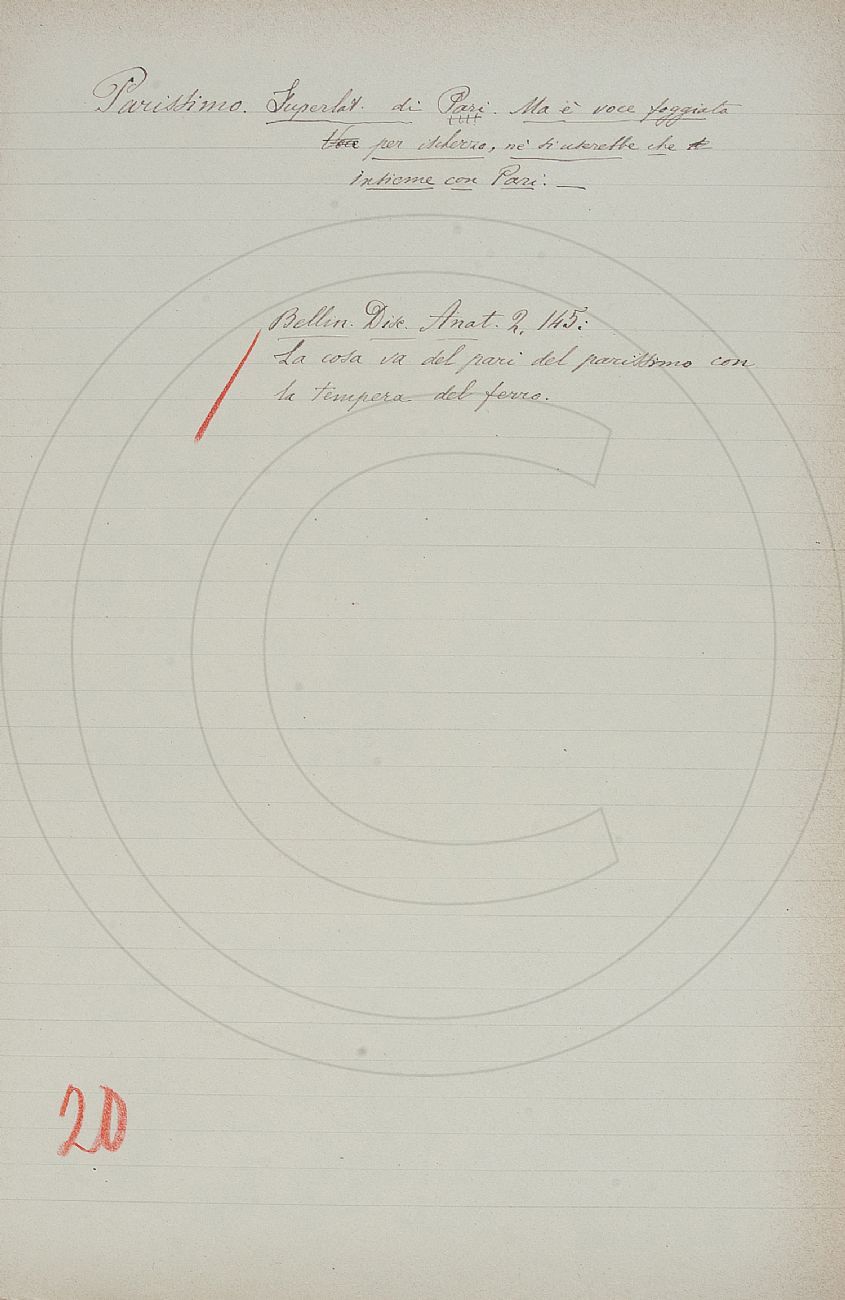 Parissimo. Superlat. di Pari. Ma è voce foggiata
Voce per ischerzo, nè si userebbe che
insieme con Pari. —
Bellin. Disc. Anat. 2, 145:
La cosa va del pari del parissimo con
la tempera del ferro.
20